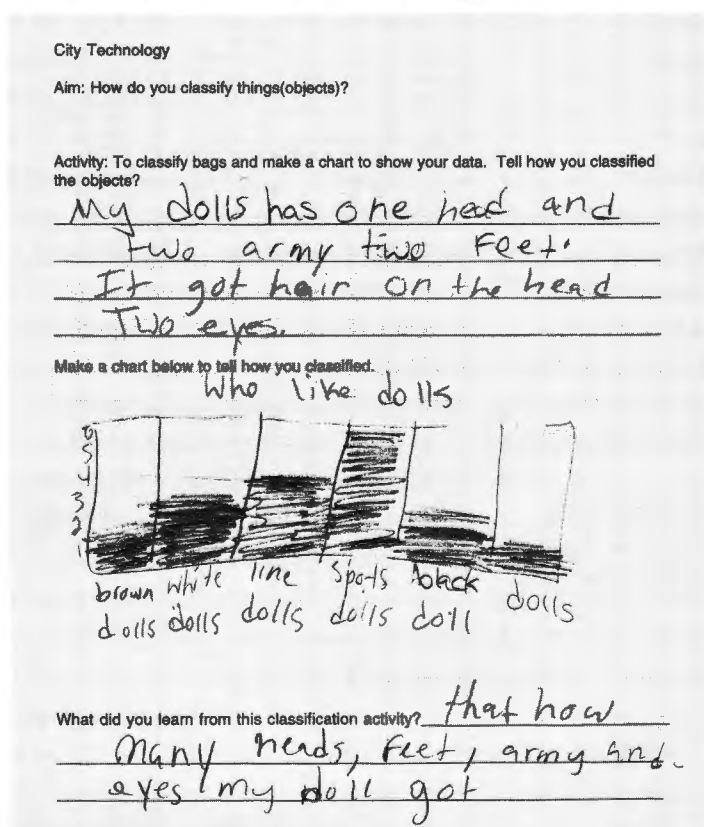 City Technology
Aim: How do you classify things(objects)?
Activity: To classify bags and make a chart to show your data. Tell how you classified
the objects?
My dolls has one head and
two army two Feet.
It got hair on the head
Two eyes.
Make a chart below to tell how you classified.
Who like dolls
6
5
4
3
2
1
brown white line Spots black dolls
dolls dolls dolls dolls doll
What did you learn from this classification activity? that how
many heads, Feet, army and
eyes my doll got